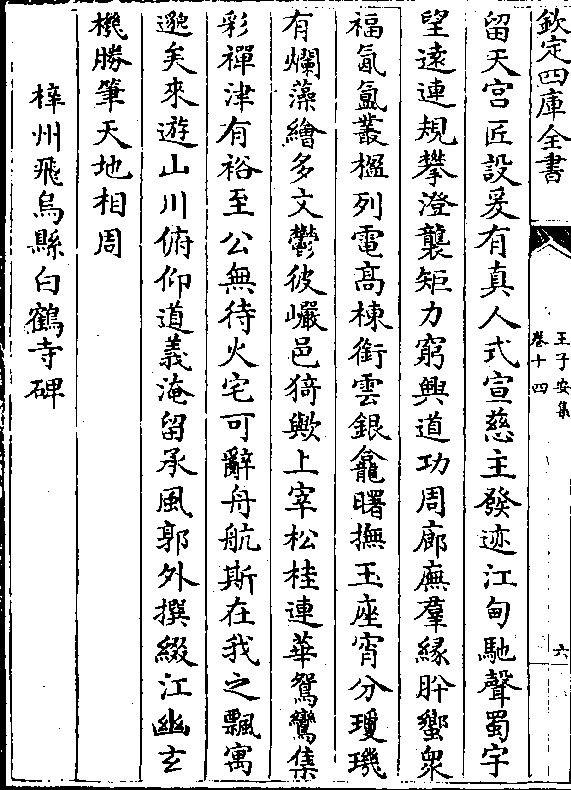 欽定四庫全書
王子安集
卷十四
六
留天宫匠設爰有真人式宣慈主發迹江甸馳聲蜀宇
望遠連規攀澄襲矩力窮興道功周廊廡羣緣肸蠁衆
福氤氲叢楹列電高棟銜雲銀龕曙撫玉座宵分瓊璣
有爛藻繪多文鬱彼巖邑猗歟上宰松桂連華鴛鸞集
彩禪津有裕至公無待火宅可辭舟航斯在我之飄寓
邈矣來遊山川俯仰道義淹留承風郭外撰綴江幽玄
機勝筆天地相周
梓州飛烏縣白鶴寺碑